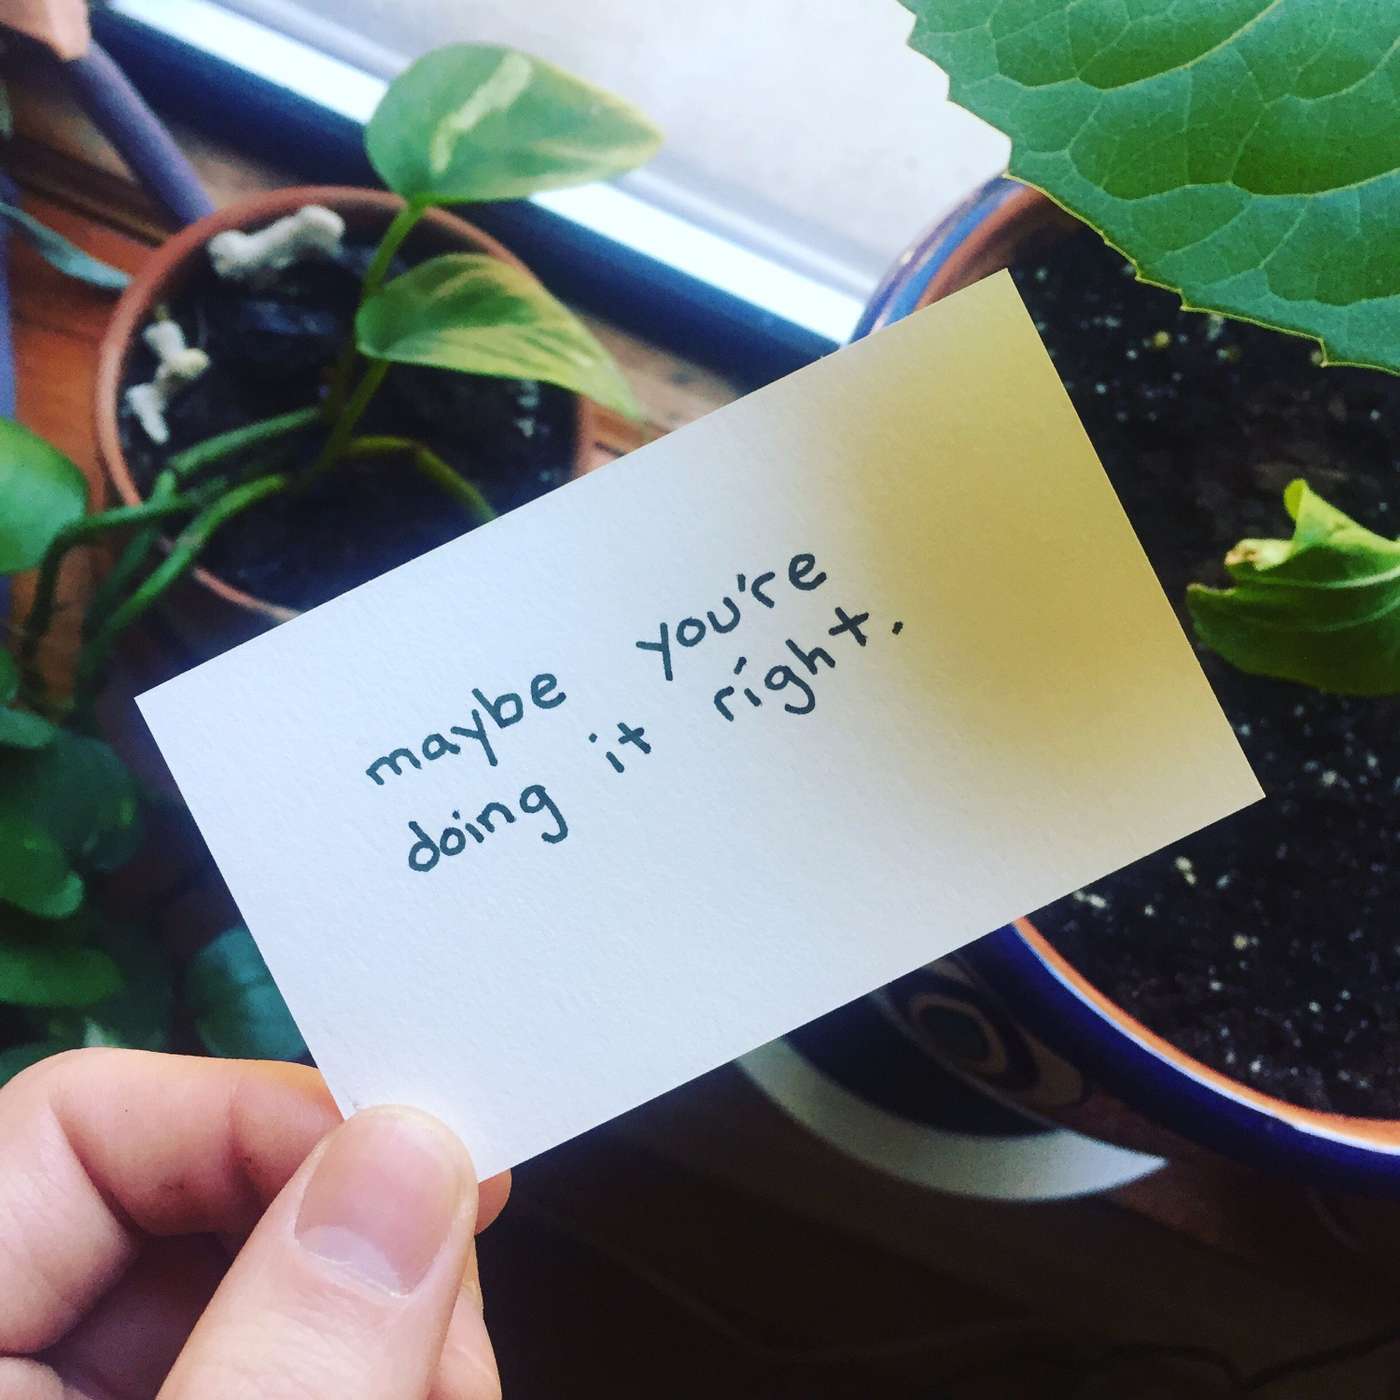 maybe you're
doing it right.